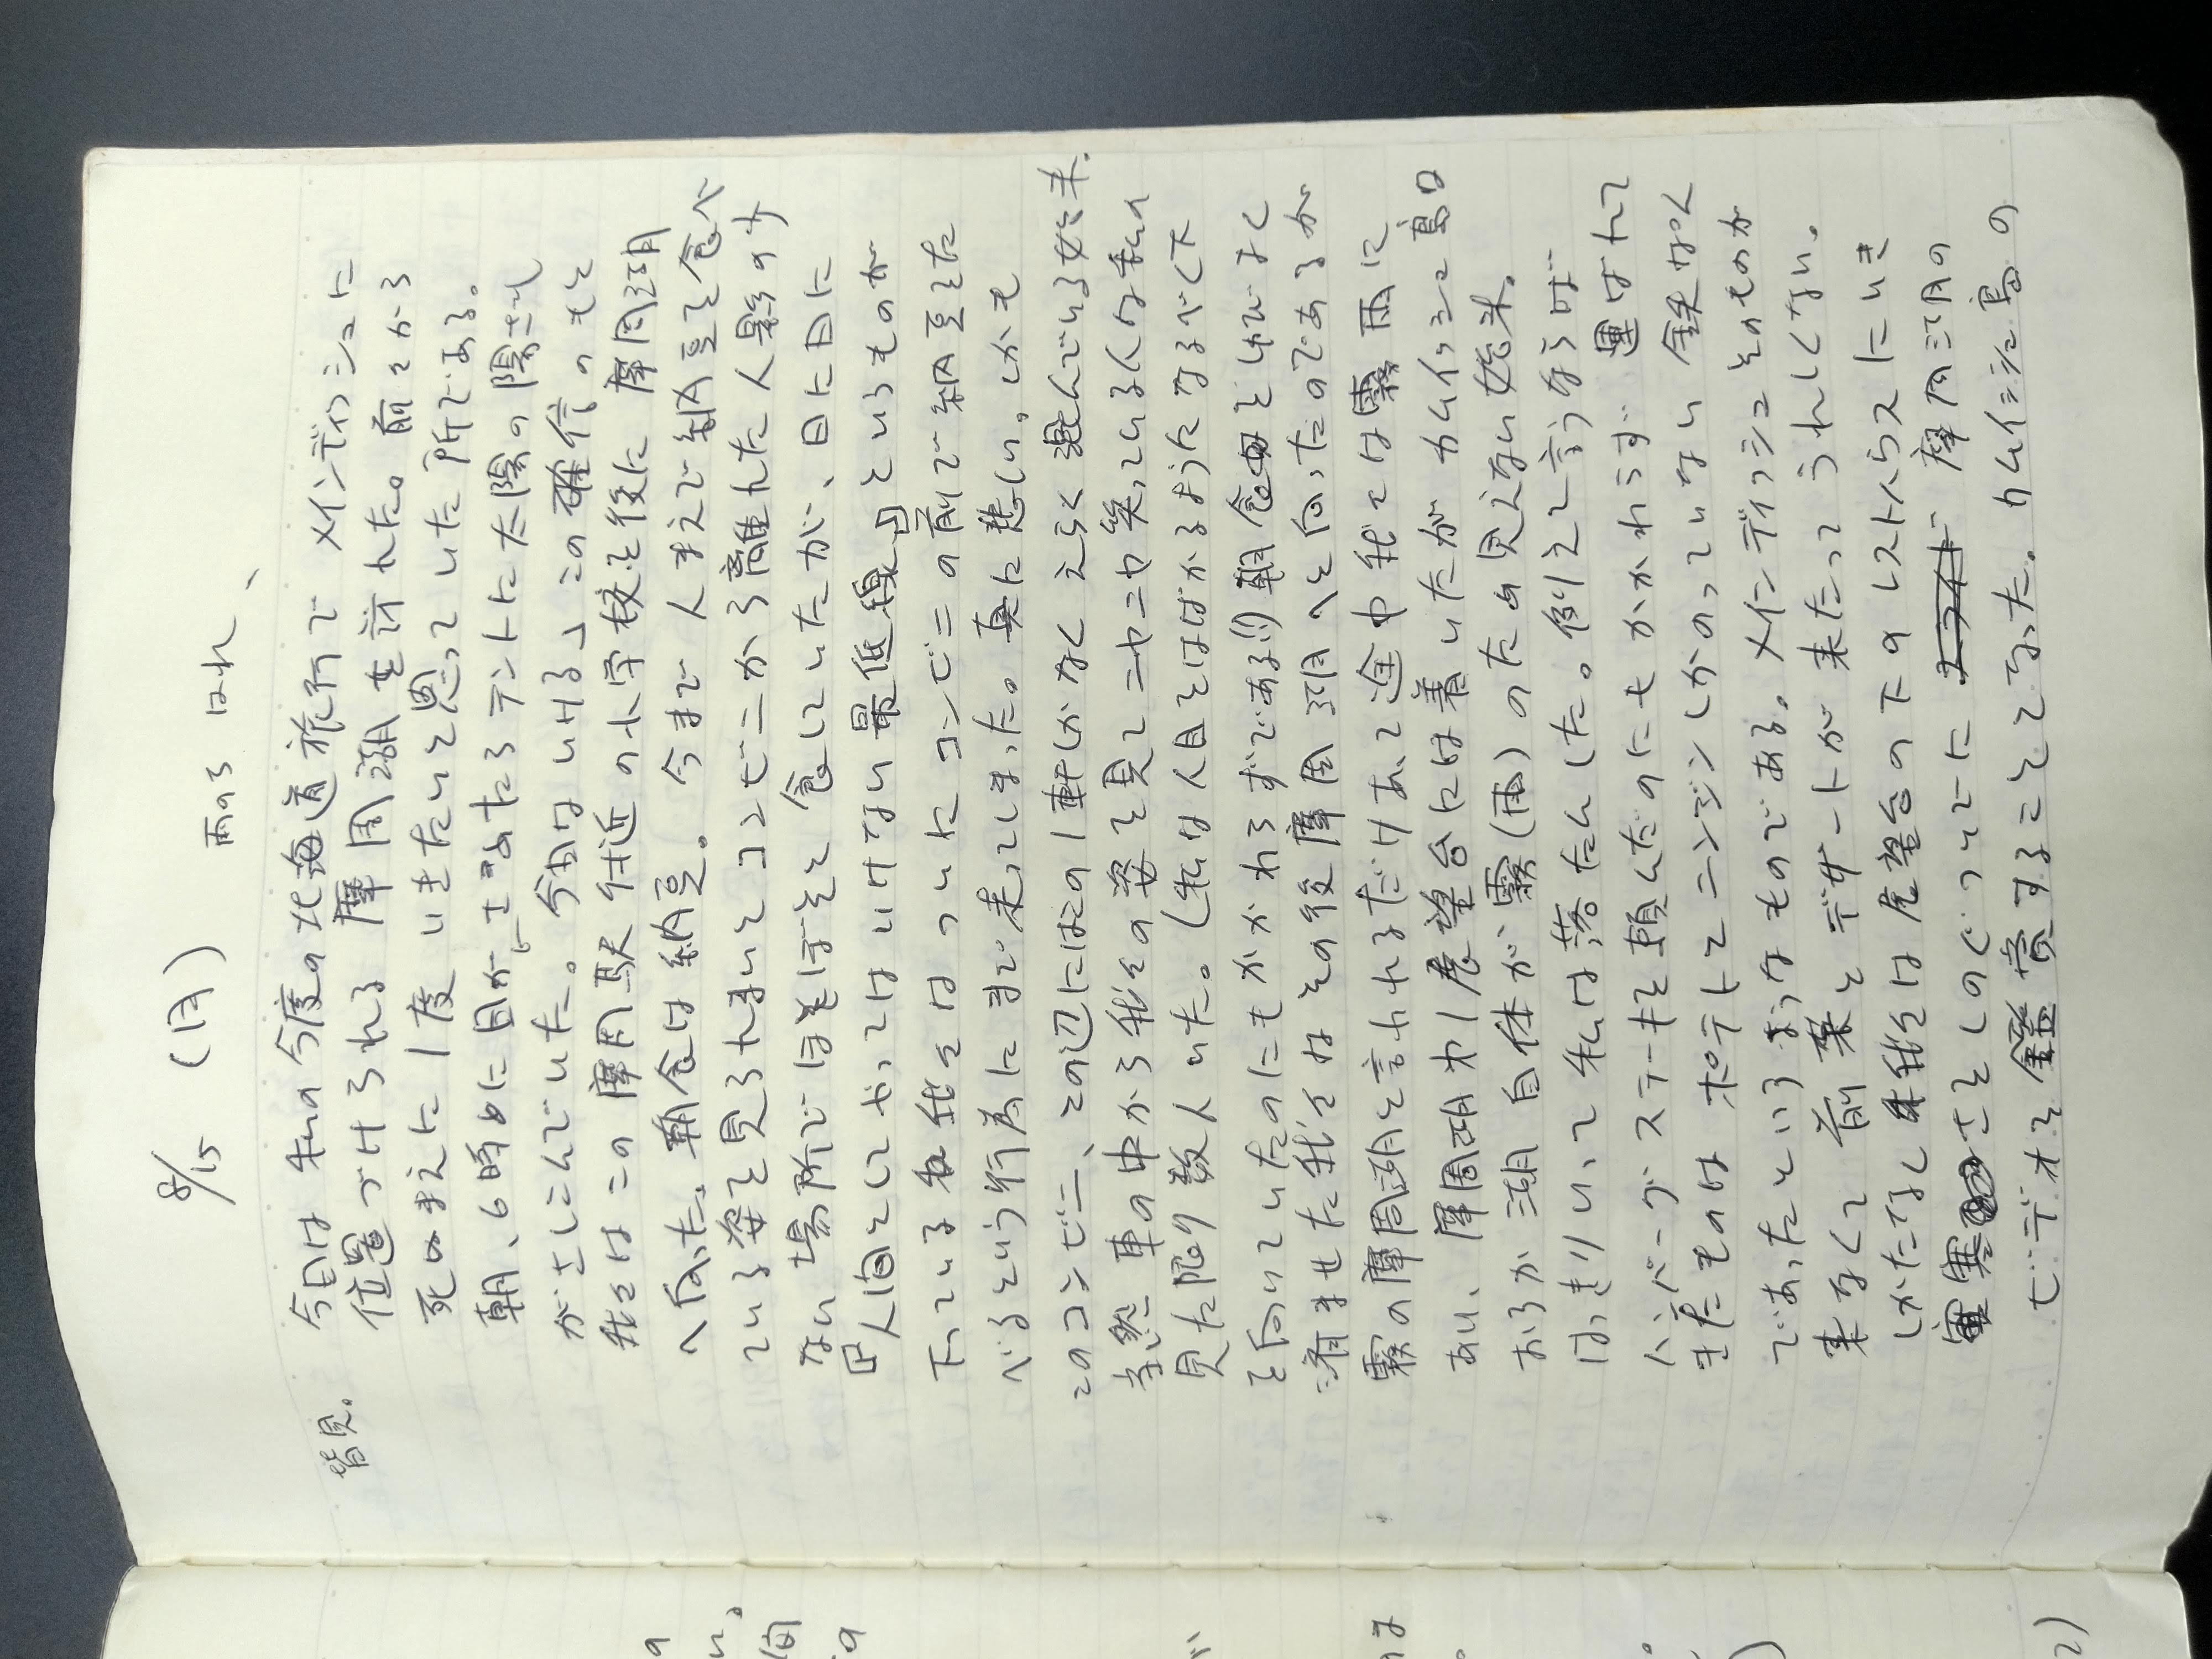 8/15 (月) 雨のち はれ、
皆見。
今日は 私の今度の北海道旅行で メインディッシュに
位置づけられる 摩周湖を訪れた。前々から
死ぬまえに1度 いきたいと思っていた所である。
朝、6時めに目がさめたらテントに太陽の陽ざし
がさしこんでいた。「今日はいける」この確信のもと
我々はこの摩周駅付近の小学校を後に 摩周湖
へ向った。朝食は納豆。今まで 人まえで納豆を食べ
ている姿を見られまいと コンビニから離れた人影の少
ない 場所で ほそぼそと 食していたが、日に日に
人間としてやってはいけない最低線というものが
下っている 我々は ついに コンビニの前で納豆をた
べるという行為にまで 走ってしまった。真に悲しい。しかも
このコンビニ、この辺にはこの1軒しかなく えらく 混んでいる始末.
当然 車の中から我々の姿を見て ニヤニヤ笑っている人々は私の
見た限り数人 いた。(私は人目をはばかるようになるべく下
を向いていたのにもかかわらずである!!) 朝食をしのびなく
済ませた我々は その後 摩周湖へと向ったのであるが
霧の摩周湖と言われるだけあって 途中 我々は霧雨に
あい、摩周湖 第1展望台には着いたが カムイッシュ島
おろか 湖自体が 霧(雨)のため 見えない始末。
はっきりいって 私は落たんした。例えて言うならば
ハンバーグステーキを頼んだのにもかかわらず 運ばれて
きたものは ポテトとニンジンしかのっていない 鉄なべ
であったというようなものである。メインディッシュそのものが
来なくて 前菜とデザートが 来たって うれしくない。
しかたなく 我々は 展望台の下のレストハウスにいき
寒さをしのぐついでに 摩周湖の
ビデオを鑑賞することとなった。カムイッシュ島の